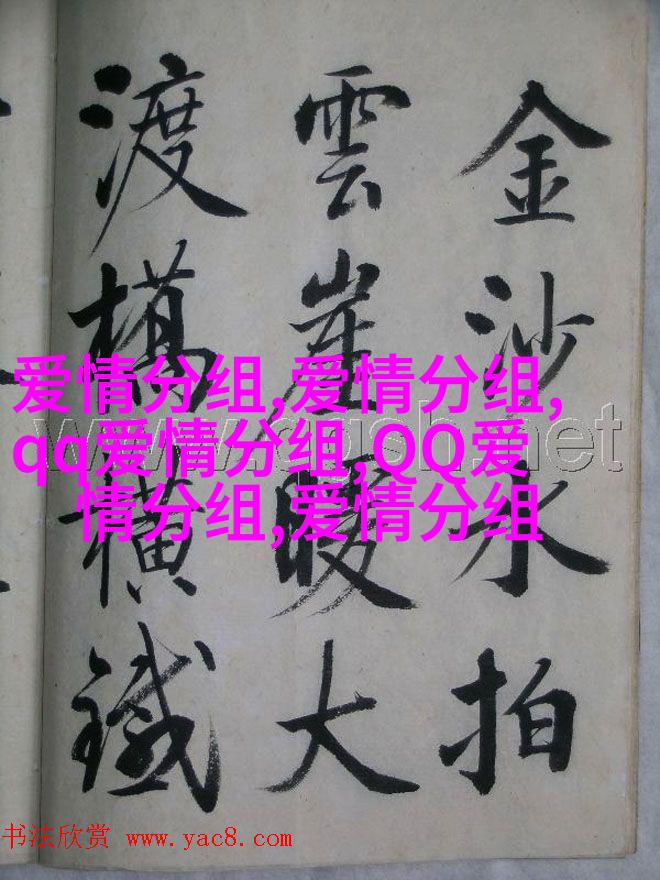 金沙水拍
雲崖暖大
渡橋横鐵
爱情分组,爱情分组,
qq爱情分组,QQ爱
情分组,爱情分组
书法欣赏 www.yac8.com